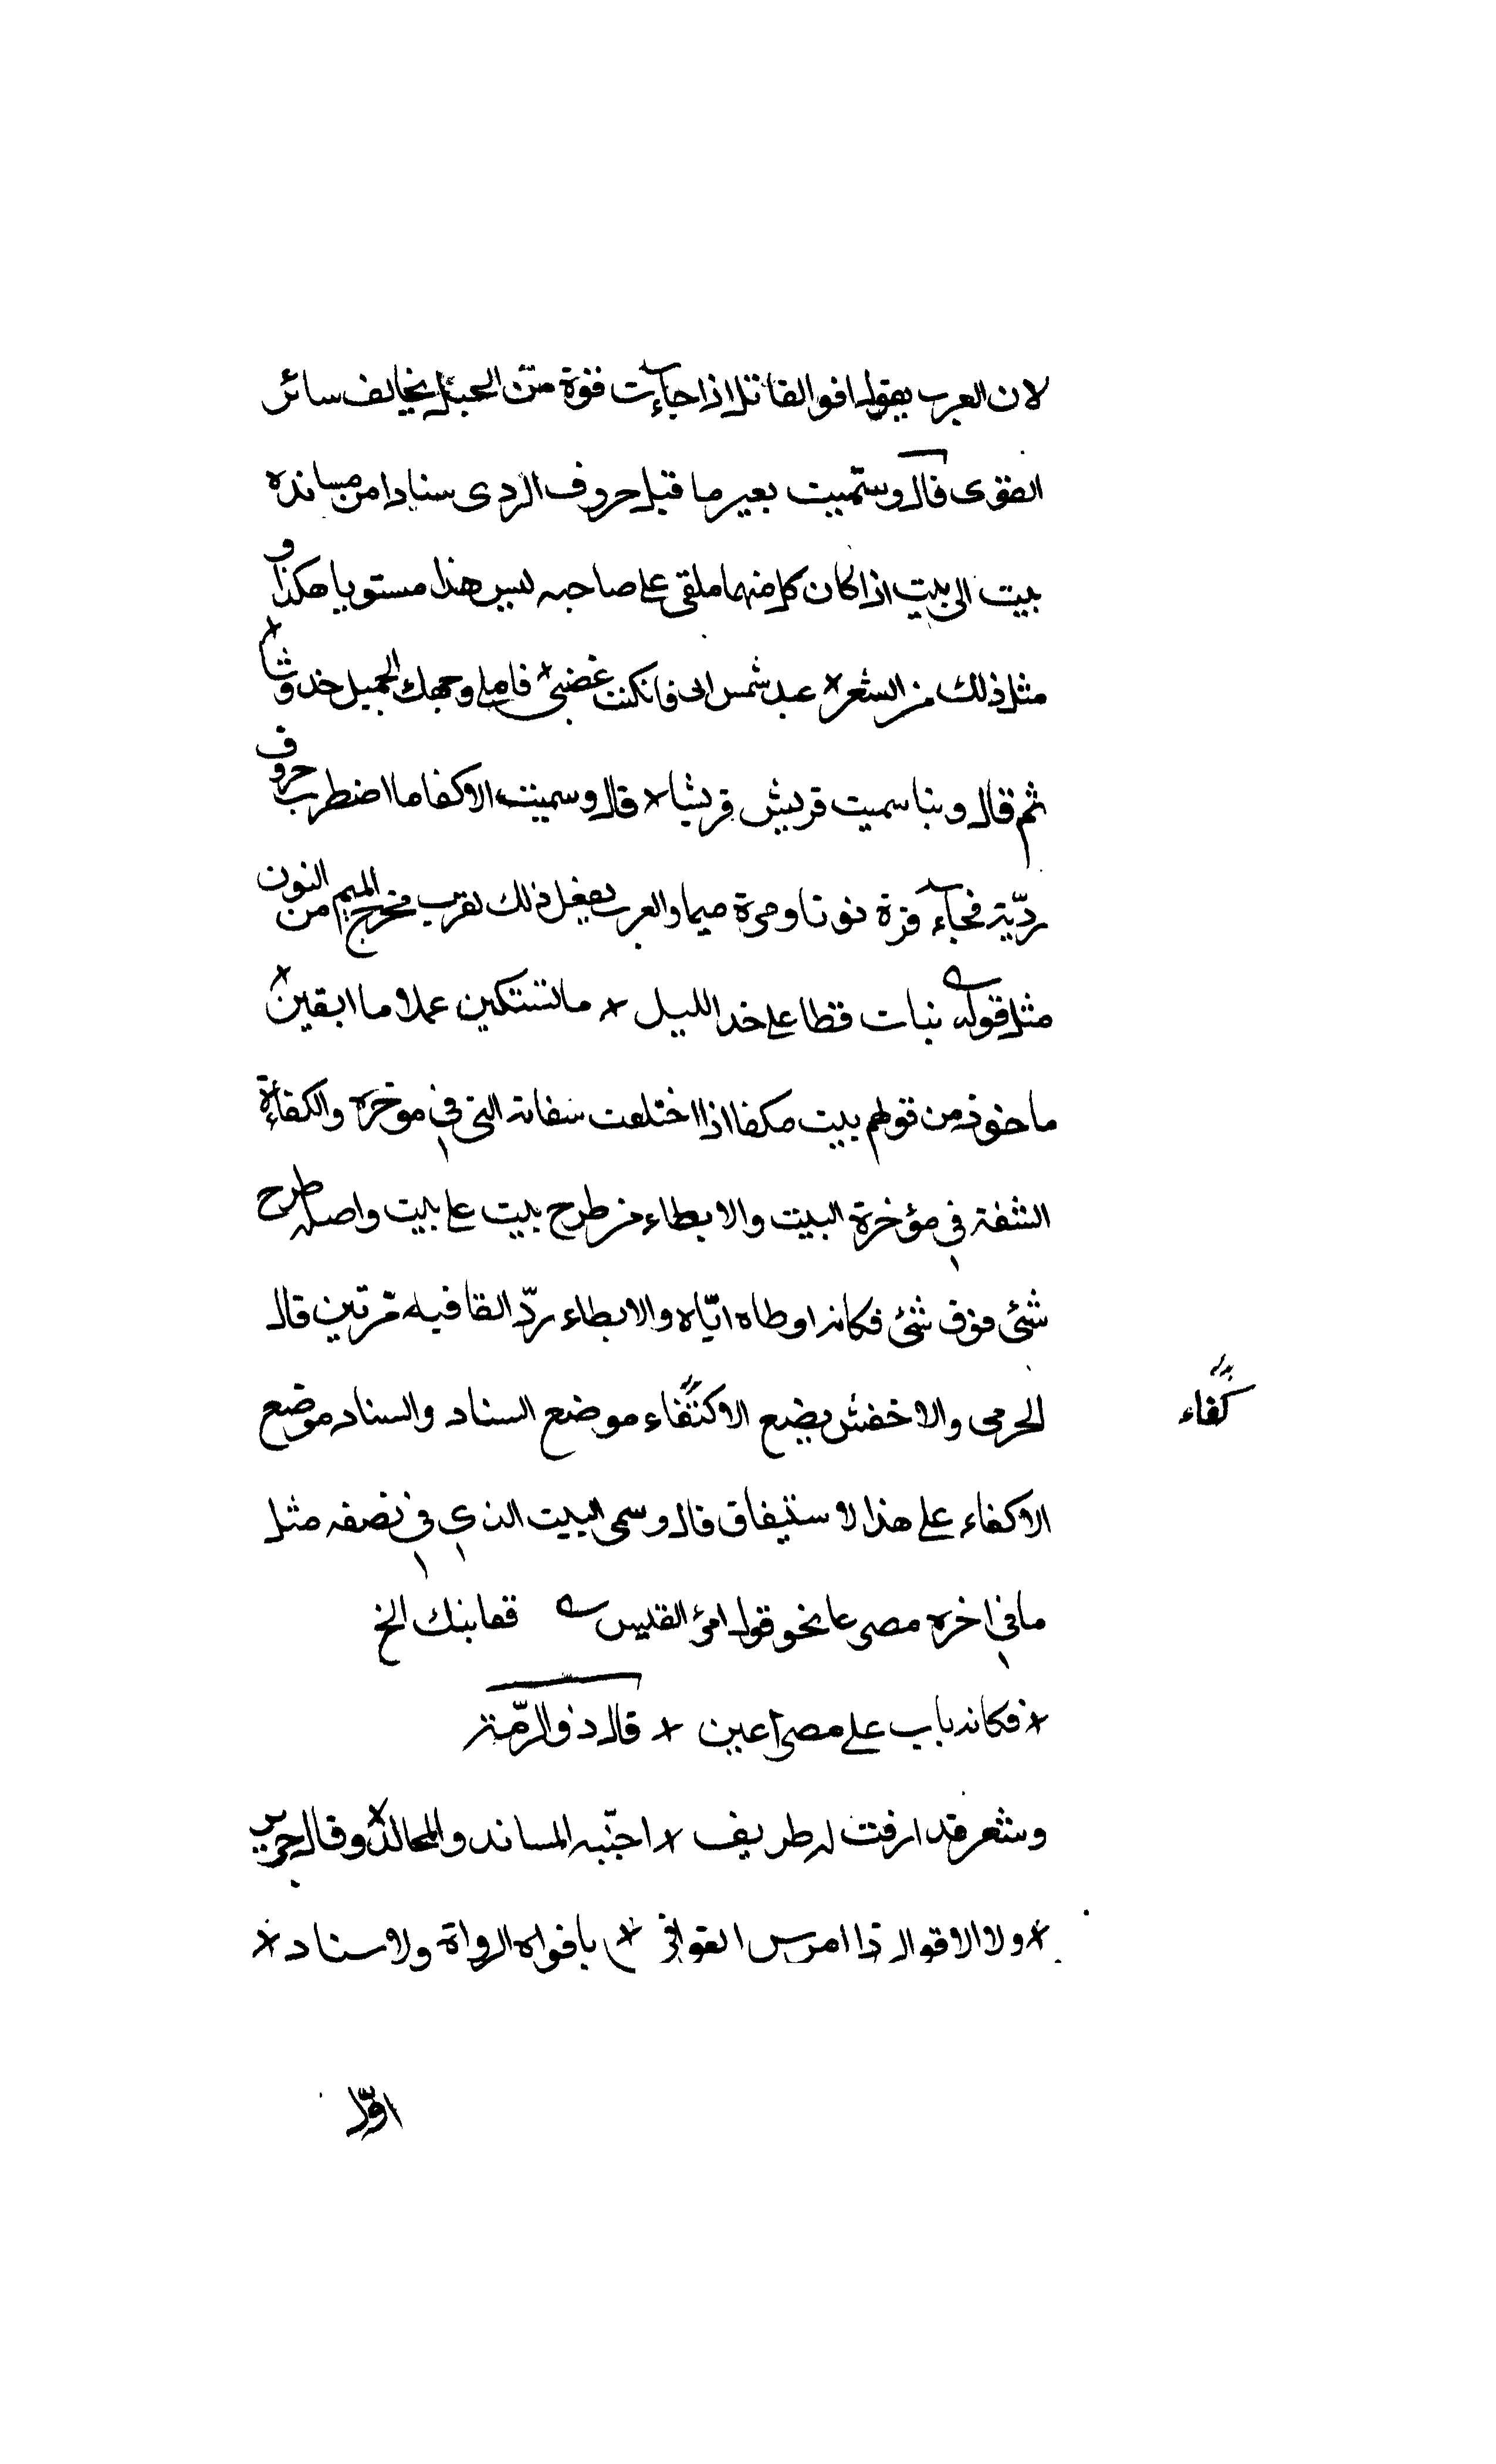 لان العرب يقول اقوا القاتل اذا جآءت قوة من الحبل يخالف سائر
القوى قال وسمّيت بعير ما قبل حروف الردى سنادا من مساندة
بيت الى بيت اذا كان كل منهما ملقى على صاحبه ليس هذا مستويا هكذا و
مثل ذلك من الشعر × عبد شمس ابى فان كنت غضبى × فاملى وجهك الجميل خدوشا ×
ثم قال وبنا سميت قريش قريشا × قال وسميت الاكفا ما اضطرب حروف
رديّة فجآء مرة نونا ومرة ميما والعرب يفعل ذلك لقرب مخرج الميم من النون
مثل قوله بنات قطا على خد الليل × ما تشتكين عملا ما ابقين ×
ماخوذ من قولهم بيت مكفا اذا اختلفت شفاته التى في موخره والكفاءة
الشفة في مؤخرة البيت والايطاء من طرح بيت على بيت واصله طرح
شئ فوق شئ فكانه اوطاه ايّاه والايطاء ردّ القافيه مرّتين قال
الجرمى والاخفش يضع الاكتفاء موضع السناد والسناد موضع
كفاء
الاكفاء على هذا لاستيفاق قال وسمى البيت الذي في نصفه مثل
ما في اخره مصرعا نحو قول امرئ القيس قفا نبك الخ
× فكانه باب على مصراعين × قال ذو الرّمة
وشعر قد ارقت له طريف × اجنّبه المساند والمحالا × وقال جرير
× ولا الاقوال ذا امرس القوافي × بافواه الرواة ولا سناد ×
اوّل